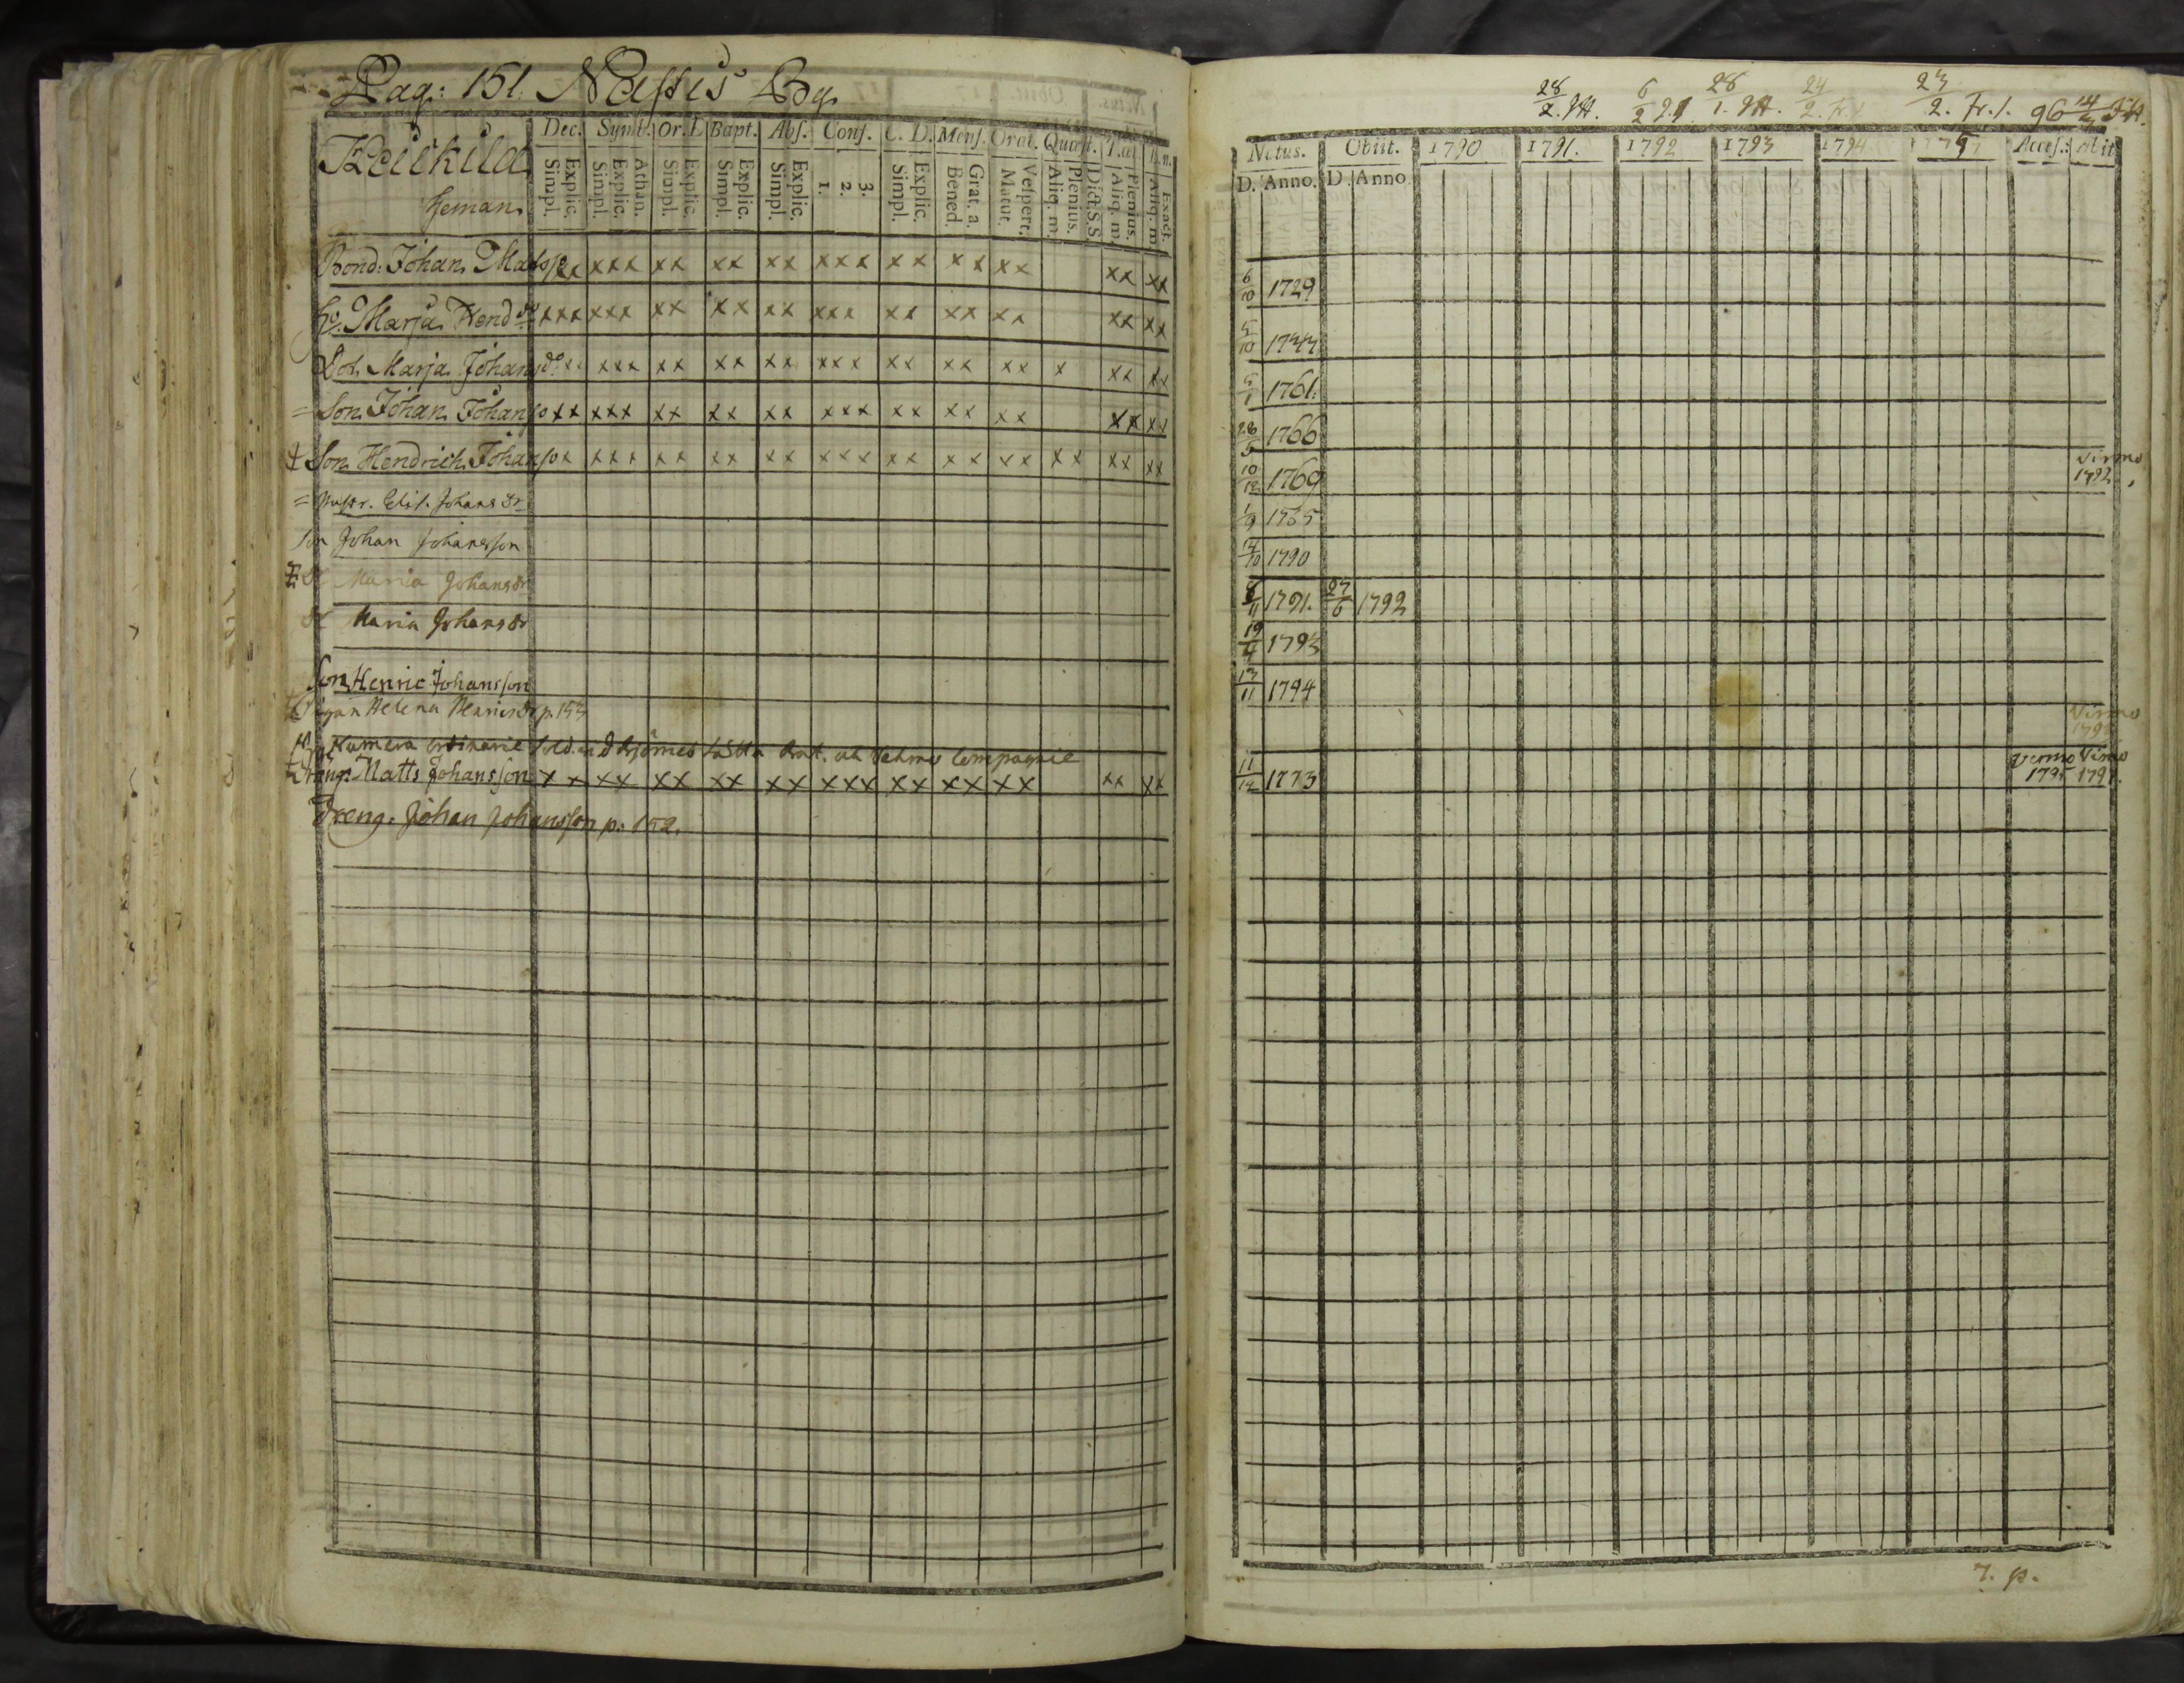 Pag: 151. Nåstis By.
Dec. Symb. Or. D Bapt. Abs. Conf. C. D. Mens. Orat. Quæst.
Keickila
heman.
Explic. Simpl. Athan. Explic. Simpl. Explic. Simpl. Explic. Simpl. Explic. Simpl. 3. 2. 1. Explic. Simpl. Grat. a. Bened. Vespert. Matut. Dict. S.S. Plenius. Aliq. m. Plenius. Aliq. m. Exact. Aliq. m.
Bond: Johan Matss xx xxx xx xx xx xxx xx xx xx xx xx
hu. Marja Hend dr xxx xxx xx xx xx xxx xx xx xx xx xx
Dot. Marja Johansdr xx xxx xx xx xx xxx xx xx xx x xx xx
= Son Johan Johanso xx xxx xx xx xx xxx xx xx xx xx xx
‡ Son Hendrich Johanso x xxx xx xx xx xxx xx xx xx xx xx xx
= Hustr. Elis. Johans dr
Son Johan Johansson
Maria Johansdr
Maria Johansdr
Son Henric Johansson
Pigan Helena p. 153
Dreng: Matts Johansson x x xx xx xx xx xxx xx xx xx xx xx
Dreng. Johan Johansson p. 152.
28/2. 6/2 28/1. 24/2. 23/2. Fr. 96
Natus. Obiit. 1790 1791. 1792 1793 1794 Acces. Abit
D. Anno. D. Anno
6/10 1729
5/10 1744
5/1 1761.
28/5 1766
10/12 1769 Virmo 1792
1/9 1765
14/10 1790
8/11 1791. 27/6 1792
19/4 1793
13/11 1794
Virmo
11/12 1773 Virmo 1795 Virmo 1797.
7. p.